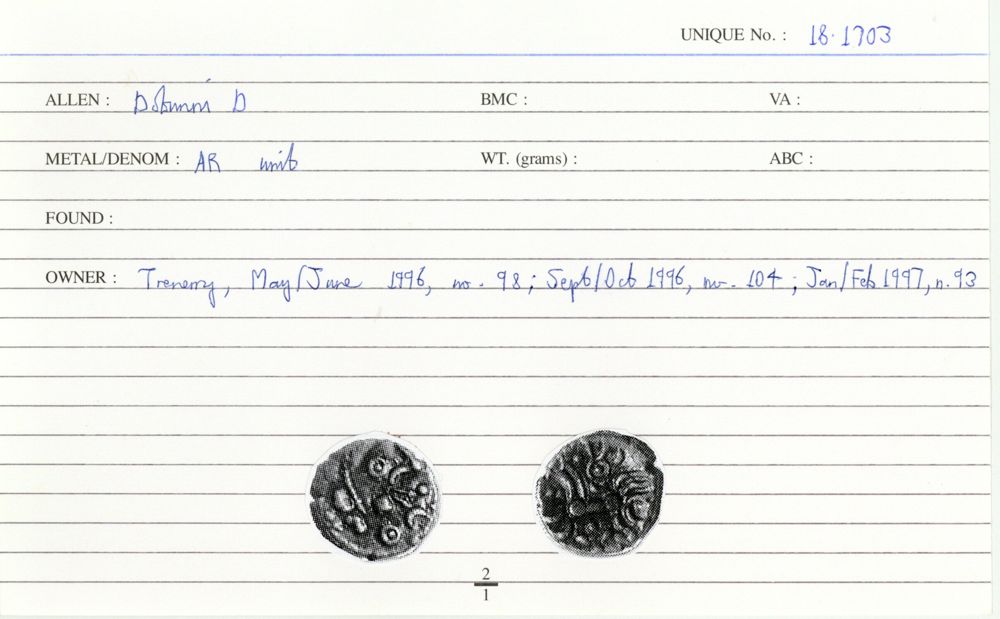 UNIQUE No. : 18.1703
ALLEN : Dobunni D BMC : VA :
METAL/DENOM : AR unit WT. (grams) : ABC :
FOUND :
OWNER : Trenerry, May/June 1996, no. 98; Sept/Oct 1996, no. 104; Jan/Feb 1997, n. 93
2
1